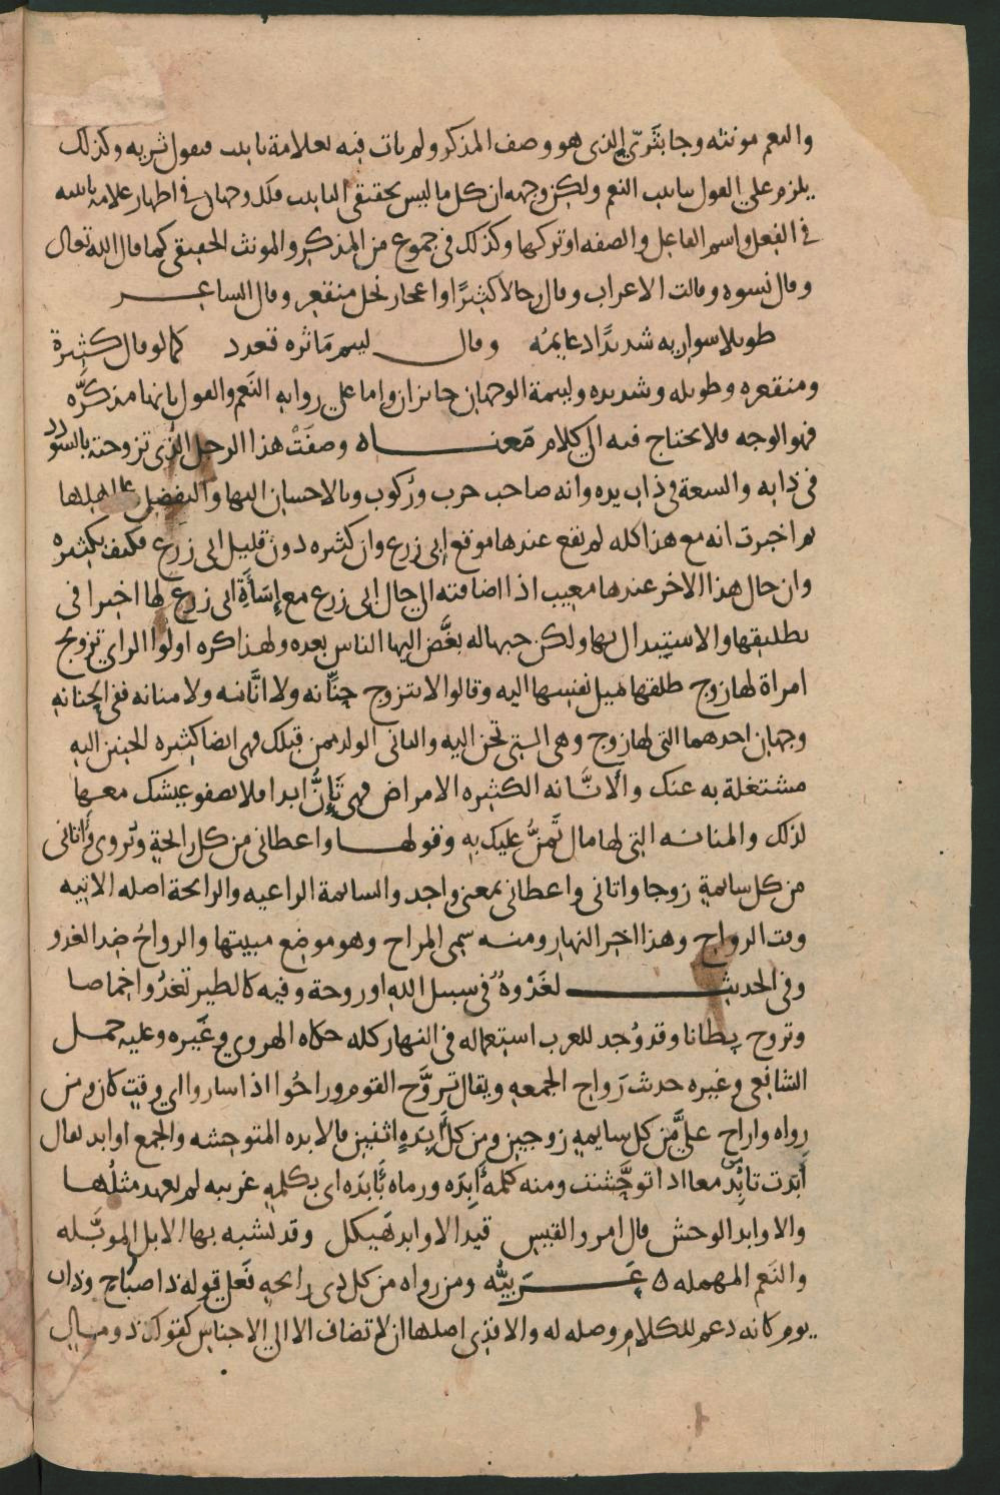 والنعم مونثه وجا بثَريّ الذى هو وصف المذكر ولم يات فيه بعلامة تانيث فيقول ثريه وكذلك
يلزم على القول بتانيث النعم ولكن وجهه ان كل ما ليس بحقيقى التانيث فلك وجهان فى اظهار علامة تانيثه
فى الفعل واسم الفاعل والصفه او تركها وكذلك فى جموع من المذكر والمونث الحقيقى كما قال الله تعالى
وقال نسوه وقالت الاعراب وقال رجالا كثيرًا واعجاز نخل منقعر وقال الشاعر
طويلا سواريه شديدًا دعايمُه وقال لييم مَاثره قعدد كما لو قال كثيرة
ومنقعره وطويله وشديده ولييمة الوجهان جايزان واما على روايه النَعم والقول بانها مذكَّره
فهو الوجه فلا يحتاج فيه الى كلام مَعناه وصفَتْ هذا الرجل الذى تزوجته بالسودد
فى ذاته والسعة فى ذات يده وانه صاحب حرب ورُكوب وبالاحسان اليها والتفضل على اهلها
ثم اخبرت انه مع هذا كله لم يقع عندها موقع ابى زرع وان كثيره دون قليل ابى زرع فكيف بكثيره
وان حال هذا الاخر عندها معيب اذا اضافته الى حال ابى زرع مع إسَأَةِ ابى زرع لها اخيرا فى
تطليقها والاستبدال بها ولكن حبها له بغَّض اليها الناس بعده ولهذا كره اولوا الراى تزويج
امراة لها زوج طلقها لميل نفسها اليه وقالوا لا تتزوج حنَّانه ولا انَّانه ولا منانه ففى الحنانه
وجهان احدهما التى لها زوج وهى التى تحن اليه والثانى الولد ممن قبلك فهى ايضا كثيره الحنين اليه
مشتغلة به عنك والانَّانه الكثيره الامراض فهى تَإِنُّ ابدا فلا يصفو عيشك معها
لذلك والمنانه التى لها مال تَمنُّ عليك به وقولها واعطانى من كل رايحة ويُروى فأتانى
من كل سايمة زوجا واتانى واعطانى بمعنى واحد والسايمة الراعيه والرايحة اصله الاتيه
وقت الرواح وهذا اخر النهار ومنه سمى المراح وهو موضع مبيتها والرواحُ ضد الغدو
وفى الحديث لغَدْوةٌ فى سبيل الله او روحة وفيه كالطير تغدُوا خماصا
وتروح بطانا وقد وُجد للعرب استعماله فى النهار كله حكاه الهروى وغَيره وعليه حمل
الشافعى وغيره حديث رَواح الجمعه ويقال تروَّح القوم وراحُوا اذا ساروا اى وقت كان ومن
رواه واراح علىَّ من كل سايمه زوجين ومن كل أبِدَهٍ اثنين فالابده المتوحشه والجمع اوابد يقال
أَبَدَت تابِدُ معا اذا توحَّشت ومنه كلمة أبِدَه ورماه بأبِدَه اى بكلمه غريبه لم يعهد مثلُها
والاوابد الوحش قال امرو القيس قيد الاوابد هَيكل وقد تشبه بها الابل الموبَّله
والنَعم المهمله ٥ عَربيَّه ومن رواه من كل ذى رايحه فَعلى قوله ذا صباح وذات
يوم كانه دعم للكلام وصله له والا فذى اصلها ان لا تضاف الا الى الاجناس كقولك ذو مال